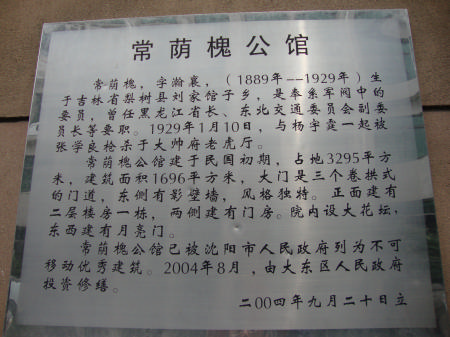 常荫槐公馆
常荫槐，字瀚襄，（1889年--1929年）生
于吉林省梨树县刘家馆子乡，是奉系军阀中的
要员，曾任黑龙江省长、东北交通委员会副委
员长等要职。1929年1月10日，与杨宇霆一起被
张学良枪杀于大帅府老虎厅。
常荫槐公馆建于民国初期，占地3295平方
米，建筑面积1696平方米，大门是三个卷拱式
的门道，东侧有影壁墙，风格独特。正面建有
二层楼房一栋，两侧建有门房。院内设大花坛，
东西建有月亮门。
常荫槐公馆已被沈阳市人民政府列为不可
移动优秀建筑。2004年8月，由大东区人民政府
投资修缮。
二00四年九月二十日立